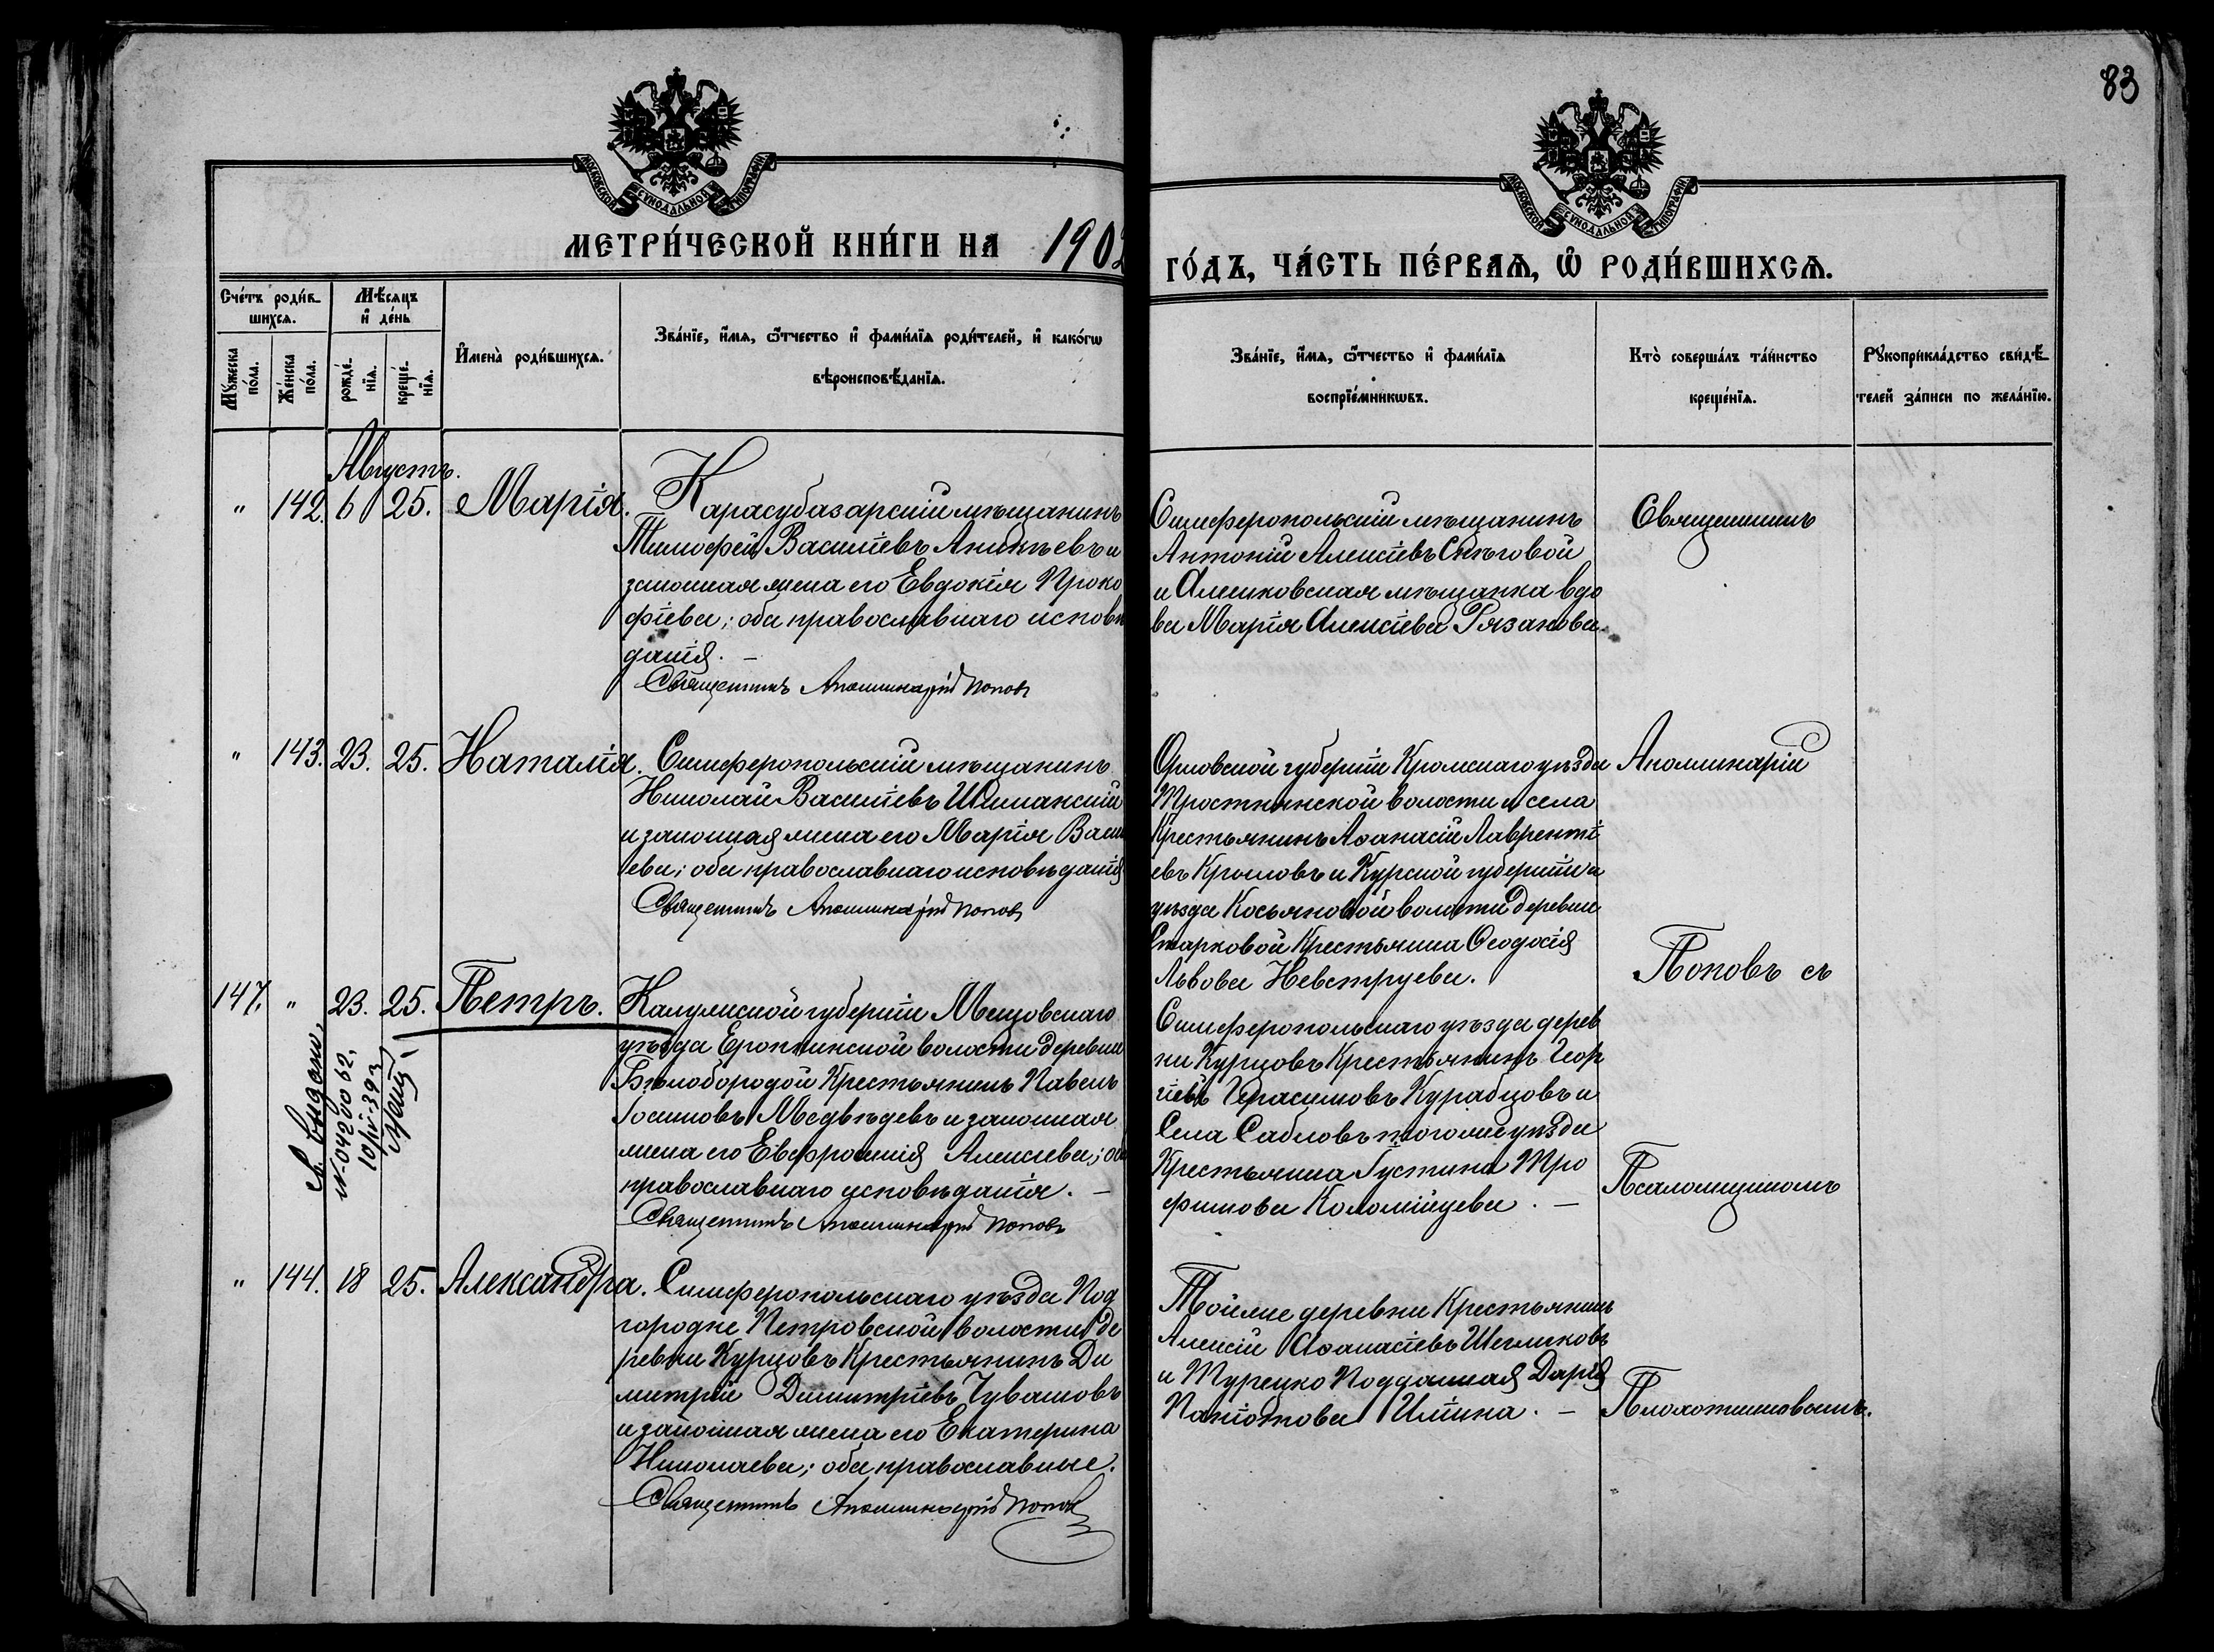 83
МОСКОВСКОЙ СѴНОДАЛЬНОЙ ТИПОГРАФІИ
МОСКОВСКОЙ СѴНОДАЛЬНОЙ ТИПОГРАФІИ
МЕТРИ́ЧЕСКОЙ КНИ́ГИ НА 1902
ГО́ДЪ, ЧА́СТЬ ПЕ́РВАѦ, Ѡ҆ РОДИ́ВШИХСѦ.
Сче́тъ роди́в-
шихсѧ.
Мꙋ́жеска
по́ла.
Же́нска
по́ла.
Мѣ́сяцъ
и҆ де́нь
рожде́-
нїѧ.
креще́-
нїѧ.
И҆мена̀ роди́вшихсѧ.
Зва́нїе, и҆́мѧ, ѻ҆́тчество и҆ фами́лїѧ роди́телей, и҆ како́гѡ
вѣроисповѣ́данїѧ.
Зва́нїе, и҆́мѧ, ѻ҆́тчество и҆ фами́лїѧ
воспрїе́мникѡвъ.
Кто̀ соверша́лъ та́инство
креще́нїѧ.
Рꙋкоприкла́дство свидѣ́-
телей за́писи по жела́нїю.
Августъ.
" 142. 6 25. Марія.
Карасубазарскій мѣщанинъ
Тимофей Василіевъ Аникѣевъ и
законная жена его Евдокія Проко
фіева; оба православнаго исповѣ
данія. —
Священникъ Аполлинарій Попов
Симферопольскій мѣщанинъ
Антоній Алексіевъ Снѣговой
и Алешковская мѣщанка вдо
ва Марія Алексіева Рязанова.
" 143. 23. 25. Наталія.
Симферопольскій мѣщанинъ
Николай Василіевъ Шиманскій
и законная жена его Марія Васи
ева; оба православнаго исповѣданія
Священникъ Аполлинарій Попов
Орловской губерніи Кромскаго уѣзда
Тростнянской волости и села
Крестьянинъ Аѳанасій Лавренті
евъ Крыловъ и Курской губерніи и
уѣзда Косьяновой волости деревни
Старковой Крестьянка Ѳеодосія
Львова Невструева.
147. " 23. 25. Петръ.
Калужской губерніи Мещовскаго
уѣзда Еропкинской волости деревни
Бѣлобородой Крестьянинъ Павелъ
Іосифовъ Медвѣдевъ и законная
жена его Евфросинія Алексіева; оба
православнаго исповѣданія. —
Священникъ Аполлинарій Попов
Св. выдано.
N-042 00 62.
10/IV-39
Симферопольскаго уѣзда дерев
ни Курцовъ Крестьянинъ Геор
гіевъ Герасимовъ Курабцовъ и
Села Сабловъ того же уѣзда
Крестьянка Густина Тро
фимова Коломійцева. —
" 144. 18 25. Александра.
Симферопольскаго уѣзда Под
городне Петровской волости де
ревни Курцовъ Крестьянинъ Ди
митрій Димитріевъ Чувашовъ
и законная жена его Екатерина
Николаева; оба православные.
Священникъ Аполлинарій Попов
Той же деревни Крестьянинъ
Алексій Аѳанасіевъ Шегликовъ
и Турецко Подданная Дарія
Пантіотова Иліина. —
Священникъ
Аполлинарій
Поповъ съ
Псаломщикомъ
Плохотниковымъ.